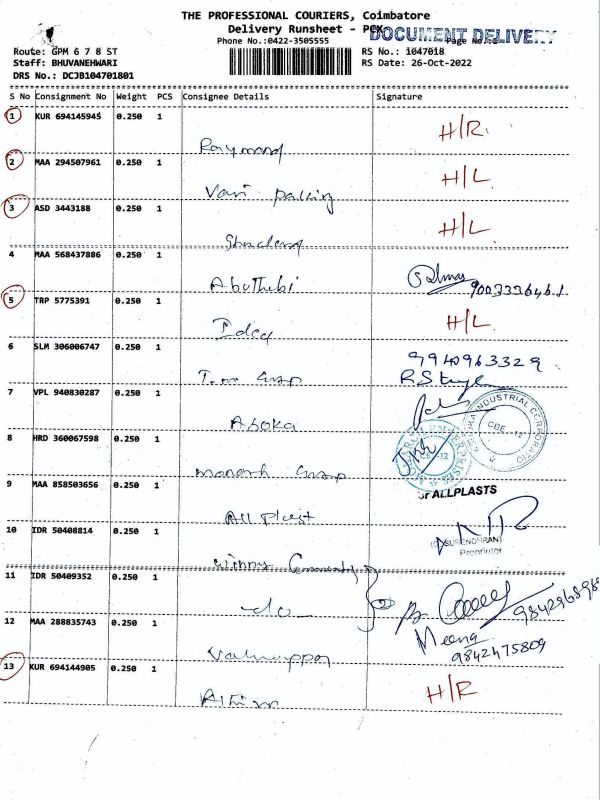 THE PROFESSIONAL COURIERS, Coimbatore
Delivery Runsheet - PCX
DOCUMENT DELIVERY
Phone No.:0422-3505555
Route: GPM 6 7 8 ST
RS No.: 1047018
Staff: BHUVANEHWARI
RS Date: 26-Oct-2022
DRS No.: DCJB104701801
S No Consignment No Weight PCS Consignee Details Signature
1 KUR 694145945 0.250 1
Raymond H/R.
2 MAA 294507961 0.250 1
Vari packing H/L
3 ASD 3443188 0.250 1
H/L
4 MAA 568437886 0.250 1
Abuthebi
5 TRP 5775391 0.250 1
Idea H/L
6 SLM 306006747 0.250 1
9940963329
7 VPL 940830287 0.250 1
Asoka
INDUSTRIAL CORPORATION
CBE-12
8 HRD 360067598 0.250 1
9 MAA 858503656 0.250 1
ALLPLASTS
All plast
10 IDR 50408814 0.250 1
(SURENDHRAN)
Proprietor
11 IDR 50409352 0.250 1
do
12 MAA 288835743 0.250 1
Meena
9842475809
13 KUR 694144905 0.250 1
H/R